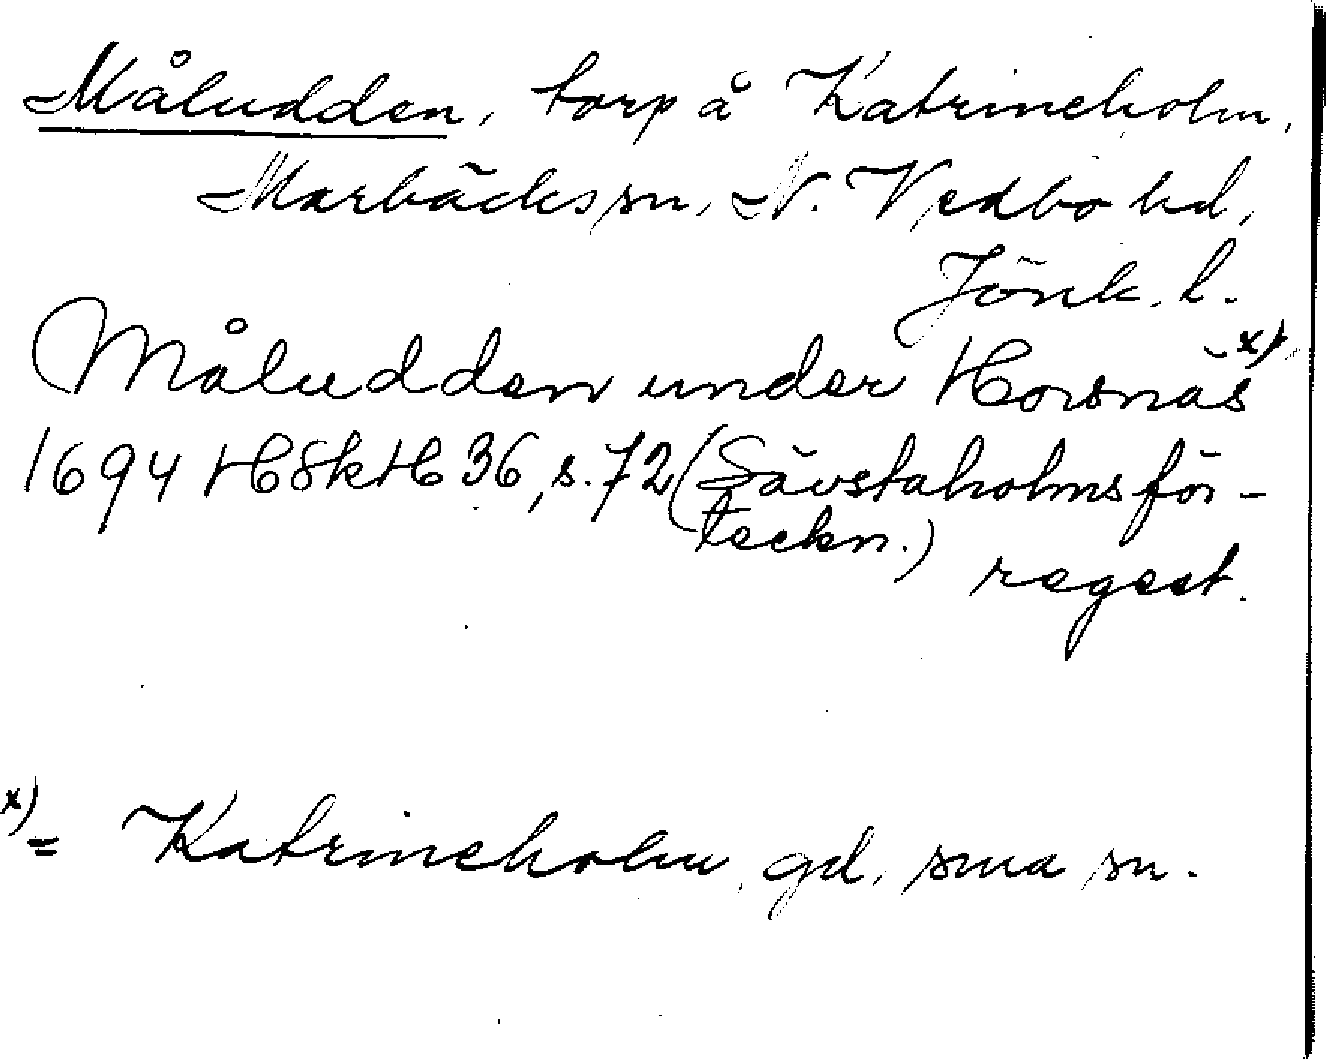 Måludden, torp å Katrineholm,
Marbäcks sn, N. Vedbo hd,
Jönk. l.
Måludden under Horsnäs x)
1694 HSkH 36, s. 72 (Sävstaholmsför-
teckn.) regest.
x)
= Katrineholm, gd, sma sn.